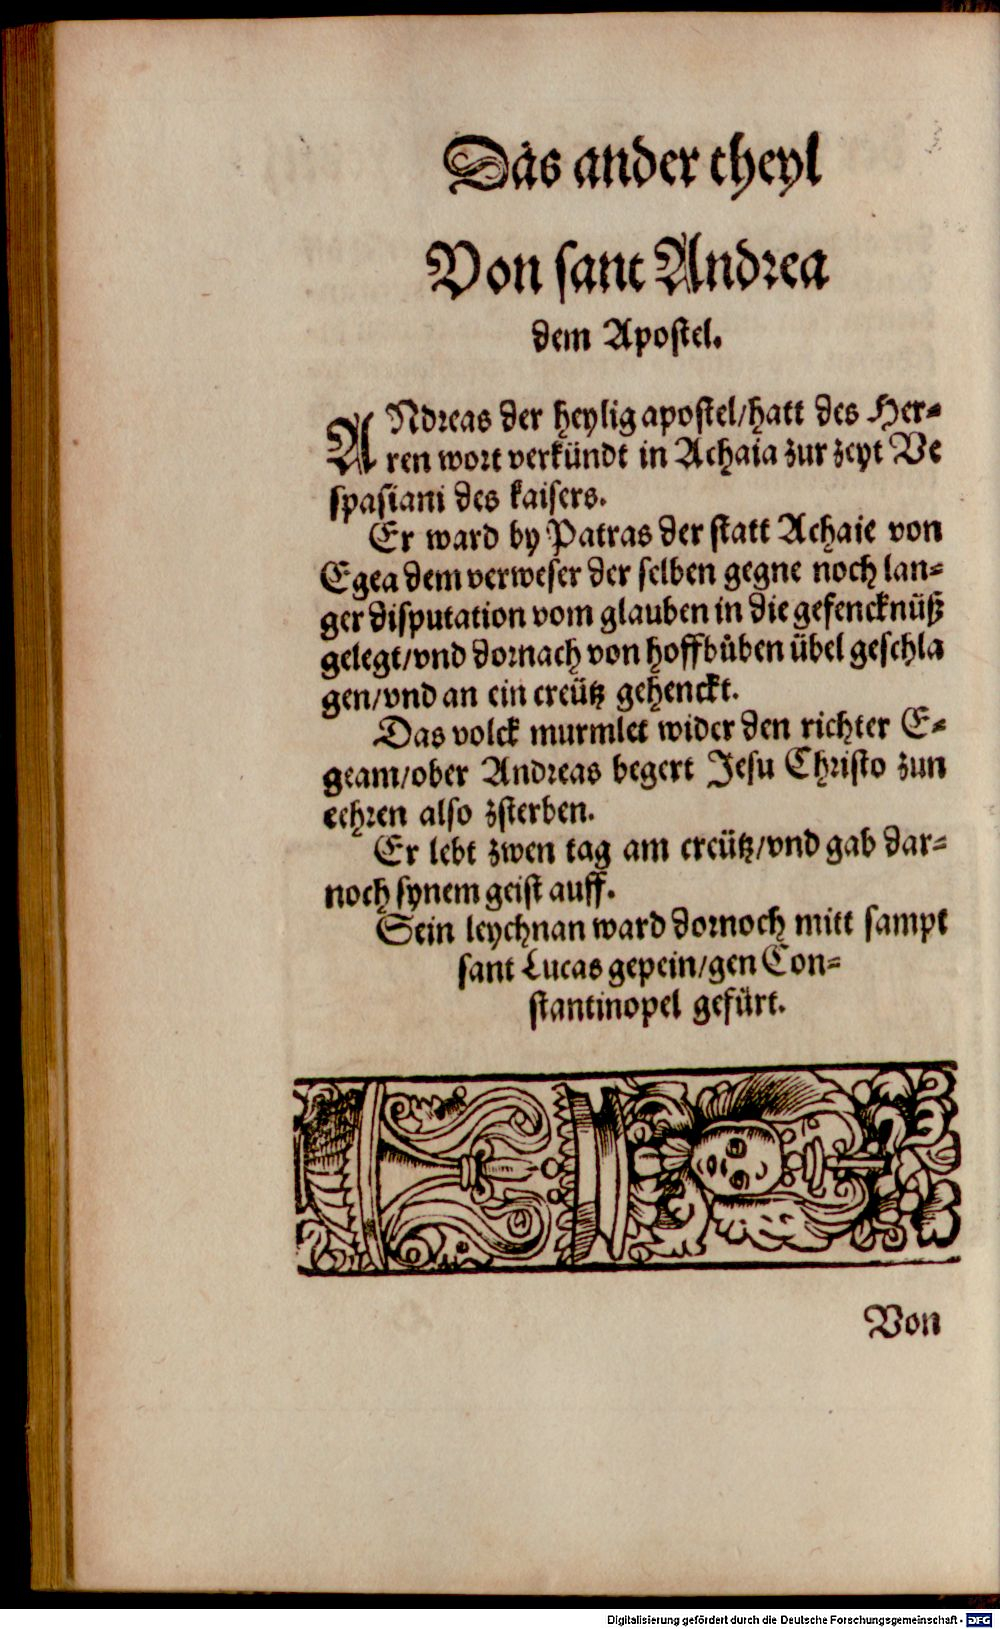 Das ander theyl
Von sant Andrea
dem Apostel.
ANdreas der heylig apostel/hatt des Her⸗
ren wort verkündt in Achaia zur zeyt Ve
spasiani des kaisers.
Er ward by Patras der statt Achaie von
Egea dem verweser der selben gegne noch lan⸗
ger disputation vom glauben in die gefencknüß
gelegt/vnd dornach von hoffbůben übel geschla
gen/vnd an ein creütz gehenckt.
Das volck murmlet wider den richter E⸗
geam/ober Andreas begert Jesu Christo zun
eehren also zsterben.
Er lebt zwen tag am creütz/vnd gab dar⸗
noch synem geist auff.
Sein leychnan ward dornoch mitt sampt
sant Lucas gepein/gen Con⸗
stantinopel gefürt.
Von
Digitalisierung gefördert durch die Deutsche Forschungsgemeinschaft - DFG